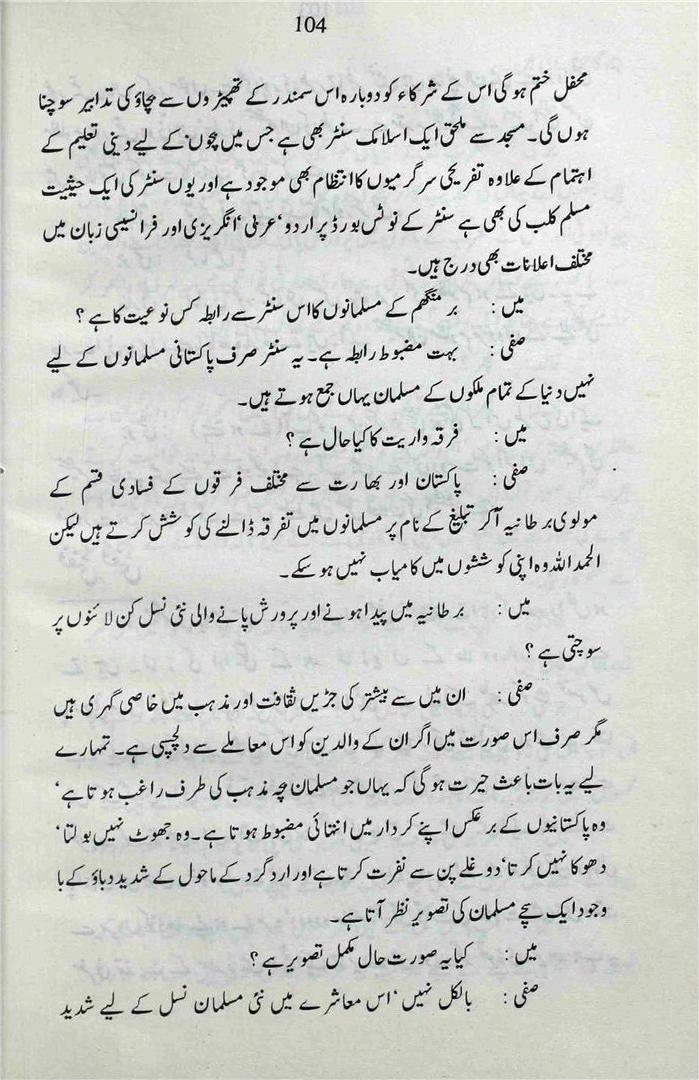 104
محفل ختم ہوگی اس کے شرکاء کو دوبارہ اس سمندر کے تھپیڑوں سے بچاؤ کی تدابیر سوچنا
ہوں گی۔ مسجد سے ملحق ایک اسلامک سنٹر بھی ہے جس میں بچوں کے لیے دینی تعلیم کے
اہتمام کے علاوہ تفریحی سرگرمیوں کا انتظام بھی موجود ہے اور یوں سنٹر کی ایک حیثیت
مسلم کلب کی بھی ہے سنٹر کے نوٹس بورڈ پر اردو‘ عربی‘ انگریزی اور فرانسیسی زبان میں
مختلف اعلانات بھی درج ہیں۔
میں : برمنگھم کے مسلمانوں کا اس سنٹر سے رابطہ کس نوعیت کا ہے ؟
صفی : بہت مضبوط رابطہ ہے۔ یہ سنٹر صرف پاکستانی مسلمانوں کے لیے
نہیں دنیا کے تمام ملکوں کے مسلمان یہاں جمع ہوتے ہیں۔
میں : فرقہ واریت کا کیا حال ہے ؟
صفی : پاکستان اور بھارت سے مختلف فرقوں کے فسادی قسم کے
مولوی برطانیہ آکر تبلیغ کے نام پر مسلمانوں میں تفرقہ ڈالنے کی کوشش کرتے ہیں لیکن
الحمد اللہ وہ اپنی کوششوں میں کامیاب نہیں ہو سکے۔
میں : برطانیہ میں پیدا ہونے اور پرورش پانے والی نئی نسل کن لائنوں پر
سوچتی ہے ؟
صفی : ان میں سے بیشتر کی جڑیں ثقافت اور مذہب میں خاصی گہری ہیں
مگر صرف اس صورت میں اگر ان کے والدین کو اس معاملے سے دلچسپی ہے۔ تمہارے
لیے یہ بات باعث حیرت ہوگی کہ یہاں جو مسلمان بچہ مذہب کی طرف راغب ہوتا ہے‘
وہ پاکستانیوں کے برعکس اپنے کردار میں انتہائی مضبوط ہوتا ہے۔ وہ جھوٹ نہیں بولتا‘
دھوکا نہیں کرتا‘ دوغلے پن سے نفرت کرتا ہے اور اردگرد کے ماحول کے شدید دباؤ کے با
وجود ایک سچے مسلمان کی تصویر نظر آتا ہے۔
میں : کیا یہ صورت حال مکمل تصویر ہے ؟
صفی : بالکل نہیں‘ اس معاشرے میں نئی مسلمان نسل کے لیے شدید